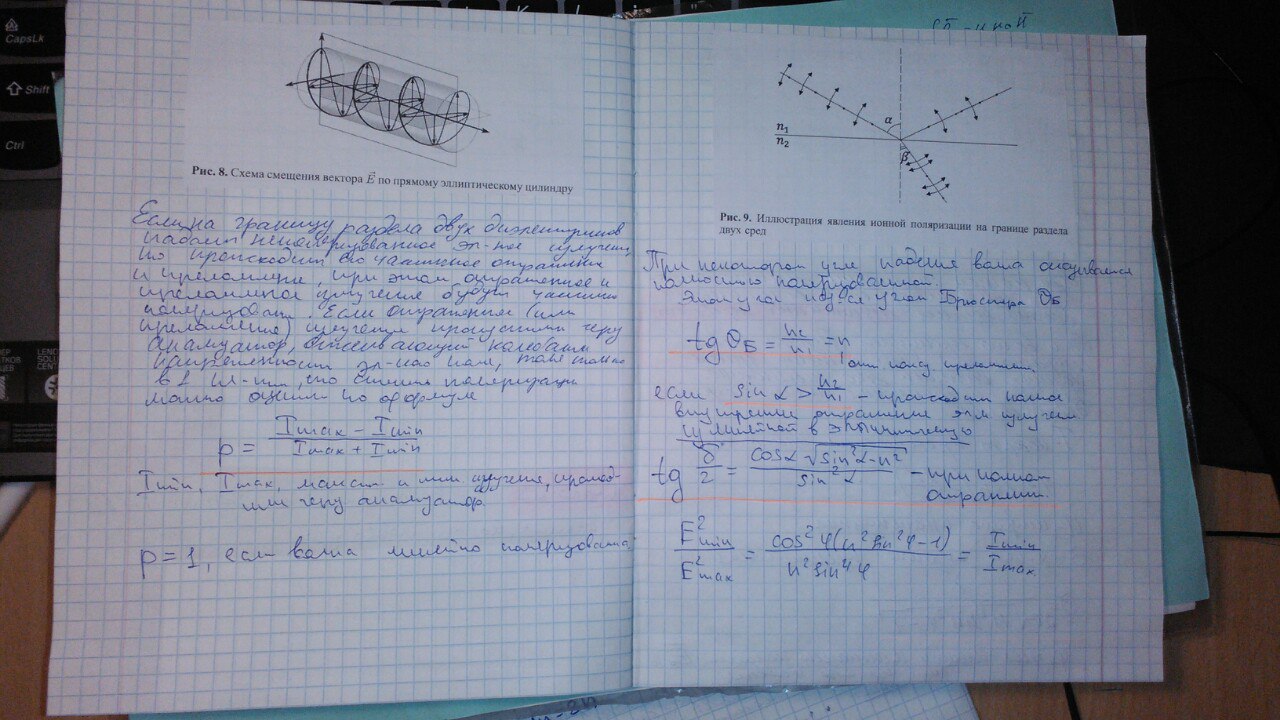 CapsLk
Shift
Ctrl
Рис. 8. Схема смещения вектора E⃗ по прямому эллиптическому цилиндру
Если на границу раздела двух диэлектриков
падает неполяризованное эл-ное излучение,
то происходит его частичное отражение
и преломление, при этом отраженное и
преломленное излучение будут частично
поляризованы. Если отраженное (или
преломленное) излучение пропустить через
анализатор,
напряженности эл-ного поля, только
в 1 пл-ти, то степень поляризации
можно оценить по формуле
p = (Imax − Imin) / (Imax + Imin)
Imin, Imax, и мин излучения,
через анализатор.
p = 1, если волна линейно поляризована
n₁
n₂
α
β
Рис. 9. Иллюстрация явления ионной поляризации на границе раздела
двух сред
При некотором угле падения волна оказывается
полностью поляризованной.
Этот угол наз-ся углом Брюстера Θ_Б
tg Θ_Б = n₂/n₁ = n
преломления
если sin α > n₂/n₁ - происходит полное
внутреннее отражение эл-м излучения
в эллиптическую
tg δ/2 = cos α √(sin²α − n²) / sin²α - при полном
отражении.
E²min / E²max = cos²φ(n² sin²φ − 1) / n² sin⁴φ = Imin / Imax